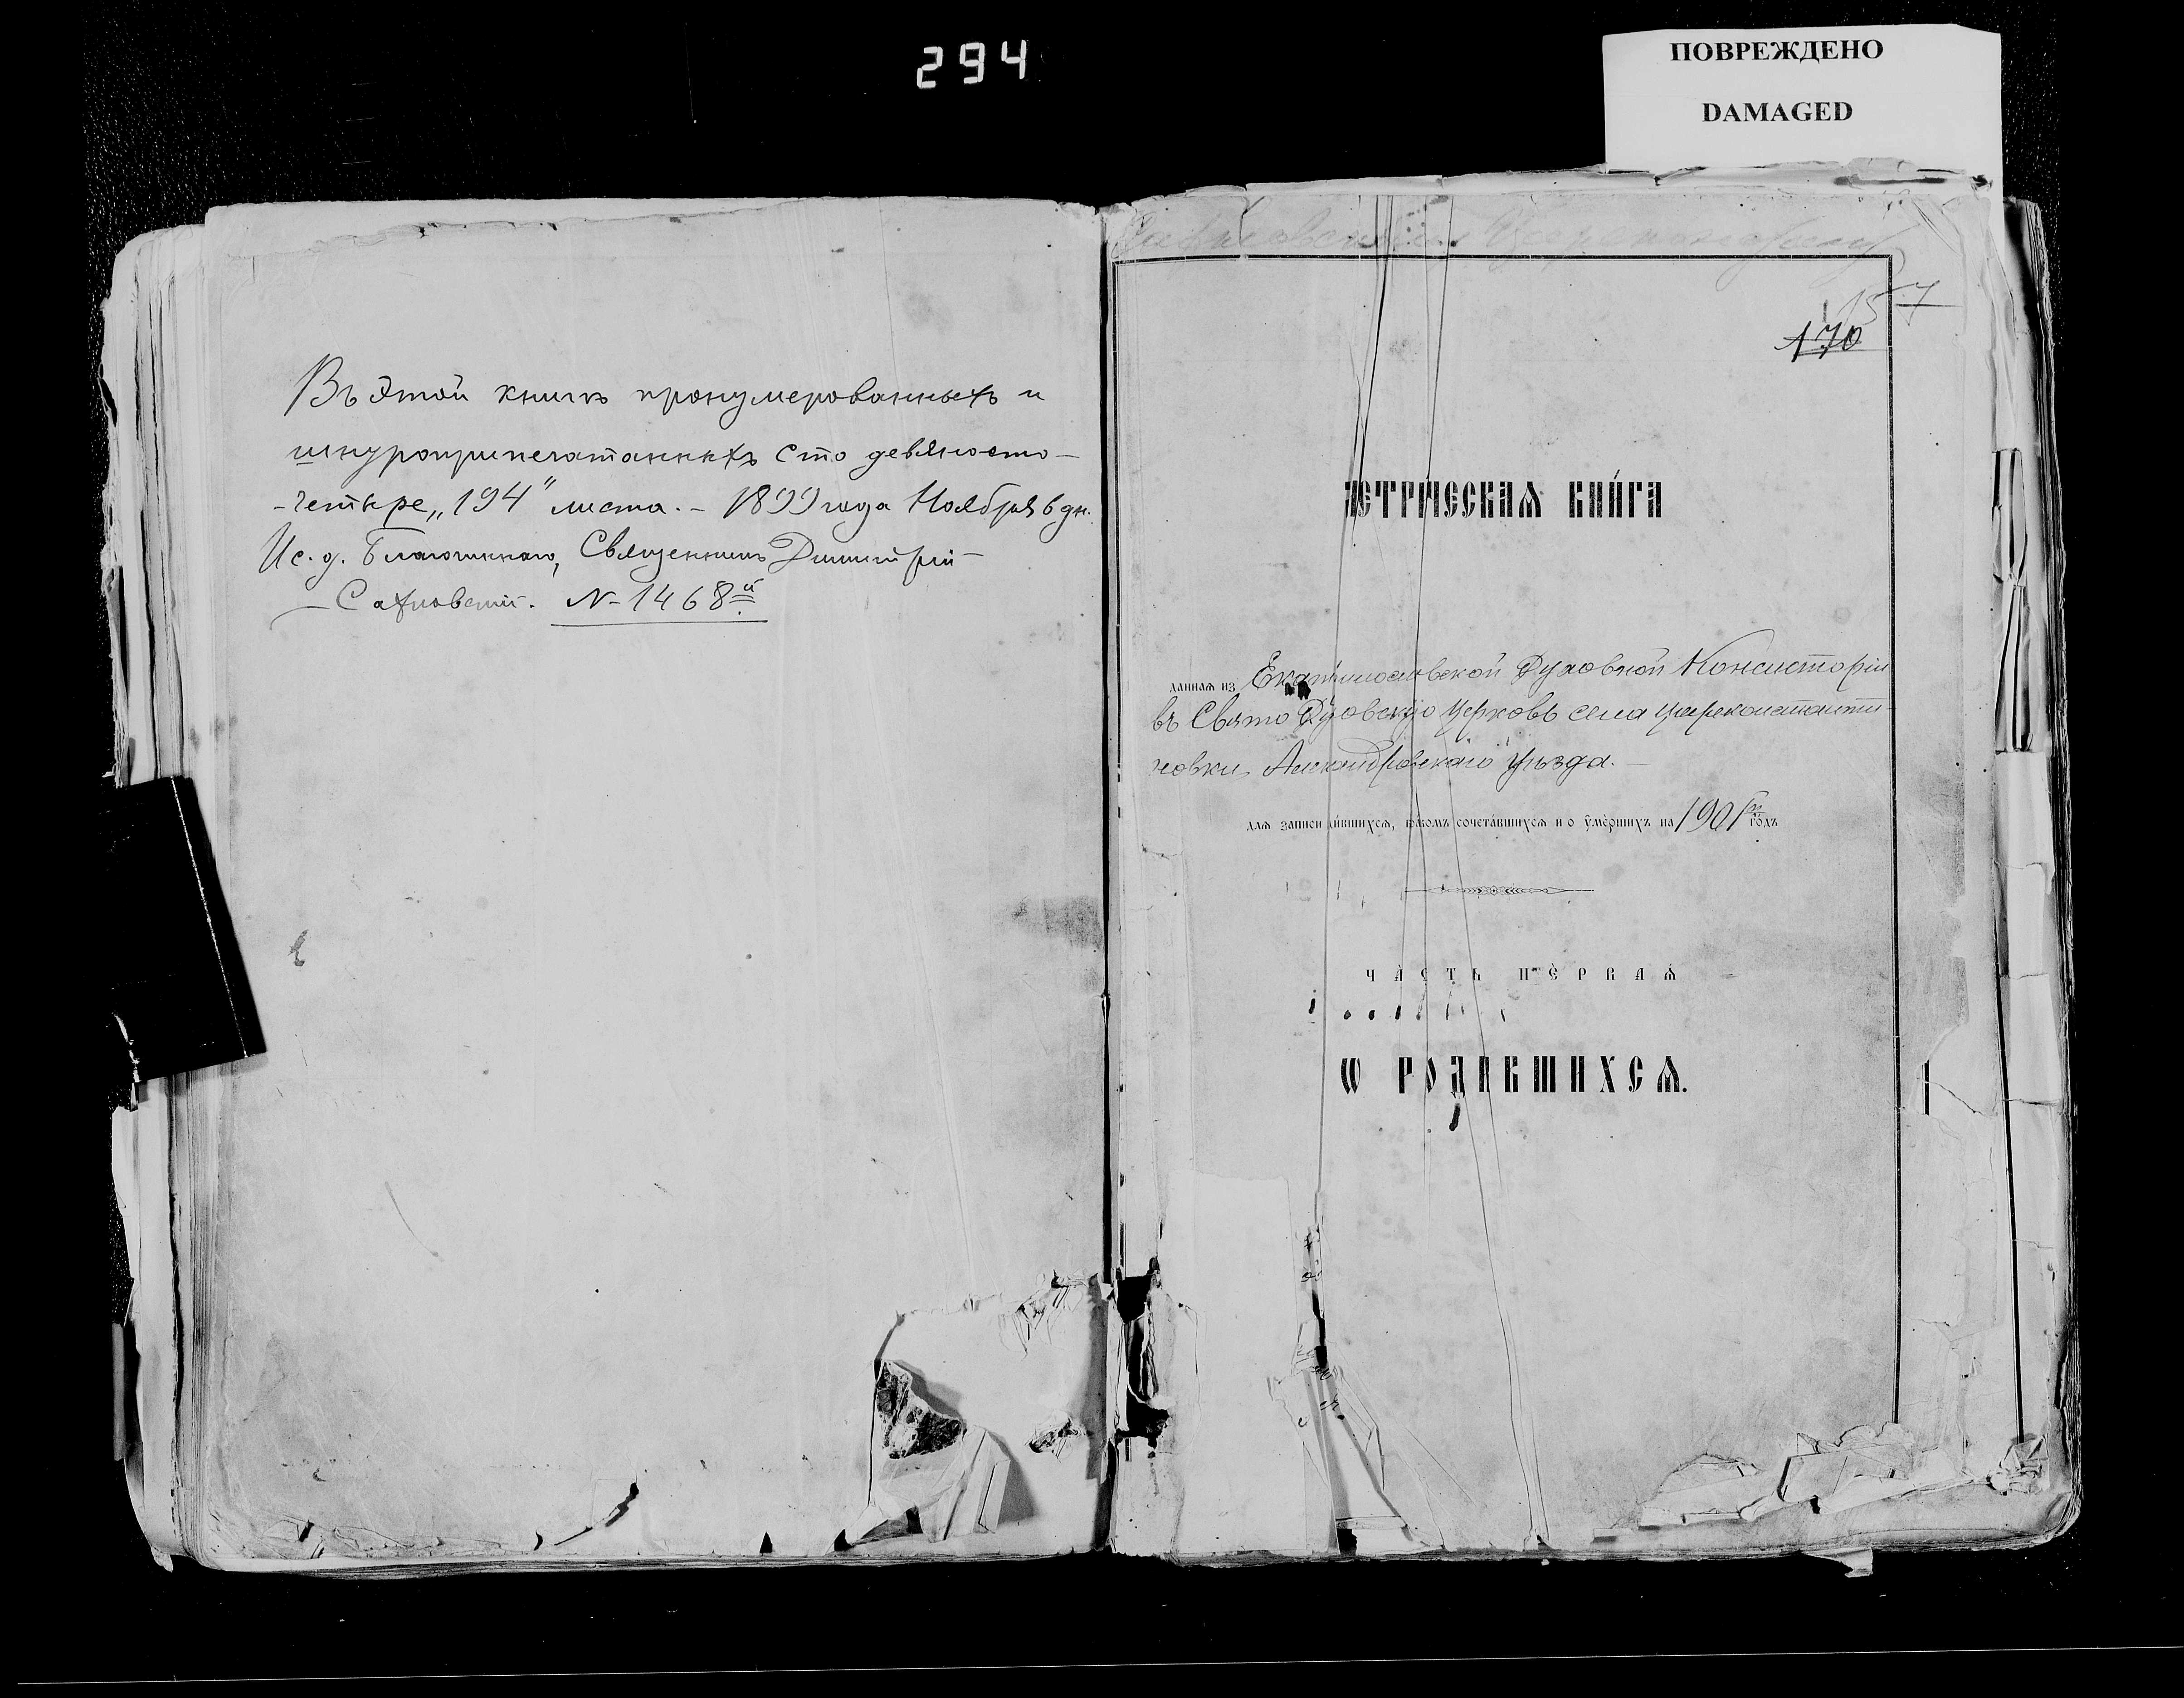 294
ПОВРЕЖДЕНО
DAMAGED
Въ этой книгѣ пронумерованныхъ и
шнуроприпечатанныхъ сто девяносто-
-четыре „194" листа. - 1899 года Ноября 6 дн.
Ис. д. Благочиннаго, Священникъ Димитрій
Сахновскій. N-1468й
157
170
етрическая книга
данная из Екатеринославской Духовной Консисторіи
въ Свято Духовскую церковь села Цареконстанти-
новки, Александровскаго уѣзда.
для записи дившихся, бракомъ сочетавшихся и о умершихъ на 1901й годъ
ЧАСТЬ ПЕРВАЯ
Ѡ РОДИВШИХСЯ.